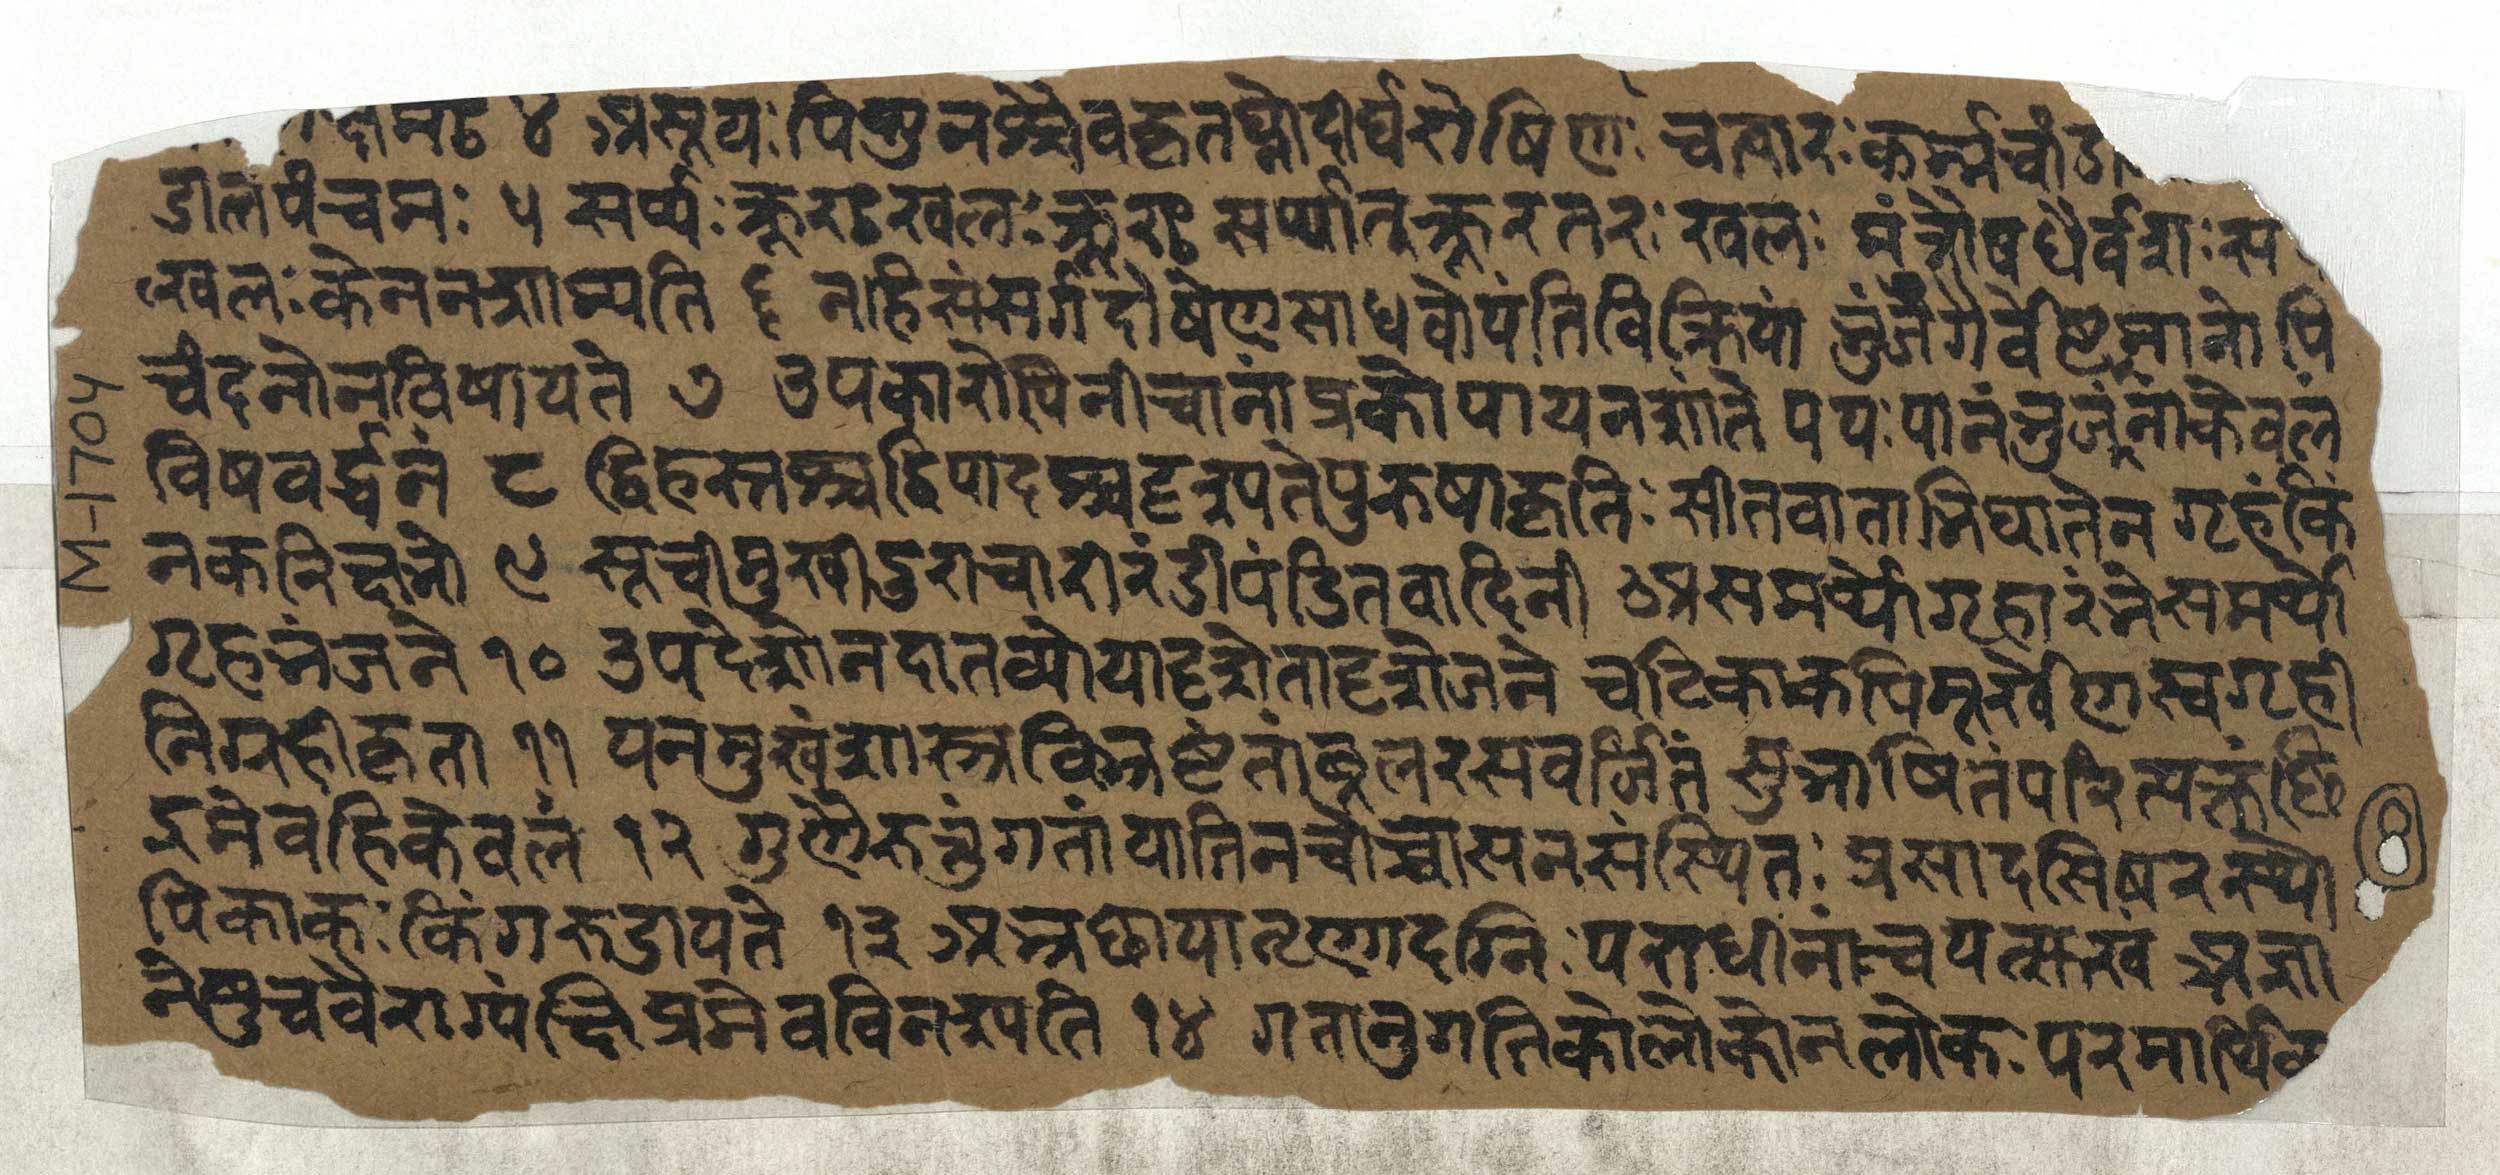 क्षमः ४ असूयः पिशुनश्चैवकृतघ्नोदीर्घरोषिणः चत्वारः कर्म्मचांडा
डालपंचमः ५ सर्प्पः क्रूरः खलः क्रूरः सर्प्पात्क्रूरतरः खलः मंत्रौषधैर्वशः स
खलः केननशाम्यति ६ नहिसंसर्गदोषेणसाधवोयंतिविक्रियां भुंजंगैर्वेष्ट्यमानोपि
चंदनोनविषायते ७ उपकारोपिनीचानांप्रकोपायनशांते पयः पानंभुजंनांकेवलं
विषवर्द्धनं ८ द्विहस्तश्चद्विपादश्चदृश्यतेपुरुषाकृतिः सीतवाताभिघातेन गृहंकिं
नकरिष्यतो ९ सूचीमुखीदुराचारीरंडीपंडितवादिनी असमर्थ्योगृहारंभेसमर्थ्यो
गृहभंजने १० उपदेशोनदातव्योयादृशेतादृशेजने चटिकाकपिमूर्खेणस्वगृही
निगृहीकृता ११ यनमुखंशास्त्रविभ्रष्टंतांबूलरसवर्जितं सुभाषितंपरित्यक्तंछि
द्रमेवहिकेवलं १२ गुणैरुत्तुंगतांयातिनचोच्चासनसंस्थितः प्रसादसिषरस्थो
पिकाकः किंगरुडायते १३ अभ्रछायातृणादग्निः पराधीनांचयत्सुखं अज्ञा
नेषुचवैराग्यंक्षिप्रमेवविनश्यति १४ गतानुगतिकोलोकोनलोकः परमार्थिक
M-1704